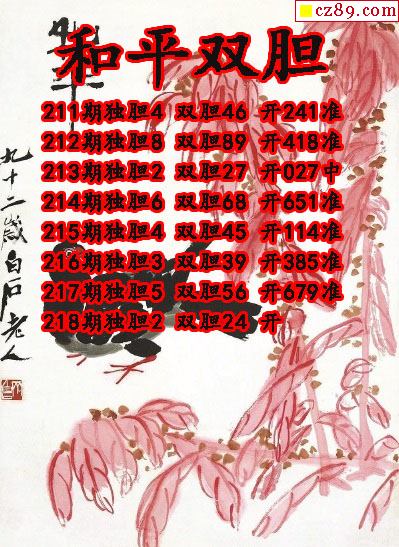 cz89.com
和平双胆
211期独胆4 双胆46 开241准
212期独胆8 双胆89 开418准
213期独胆2 双胆27 开027中
214期独胆6 双胆68 开651准
215期独胆4 双胆45 开114准
216期独胆3 双胆39 开385准
217期独胆5 双胆56 开679准
218期独胆2 双胆24 开
九十二岁白石老人